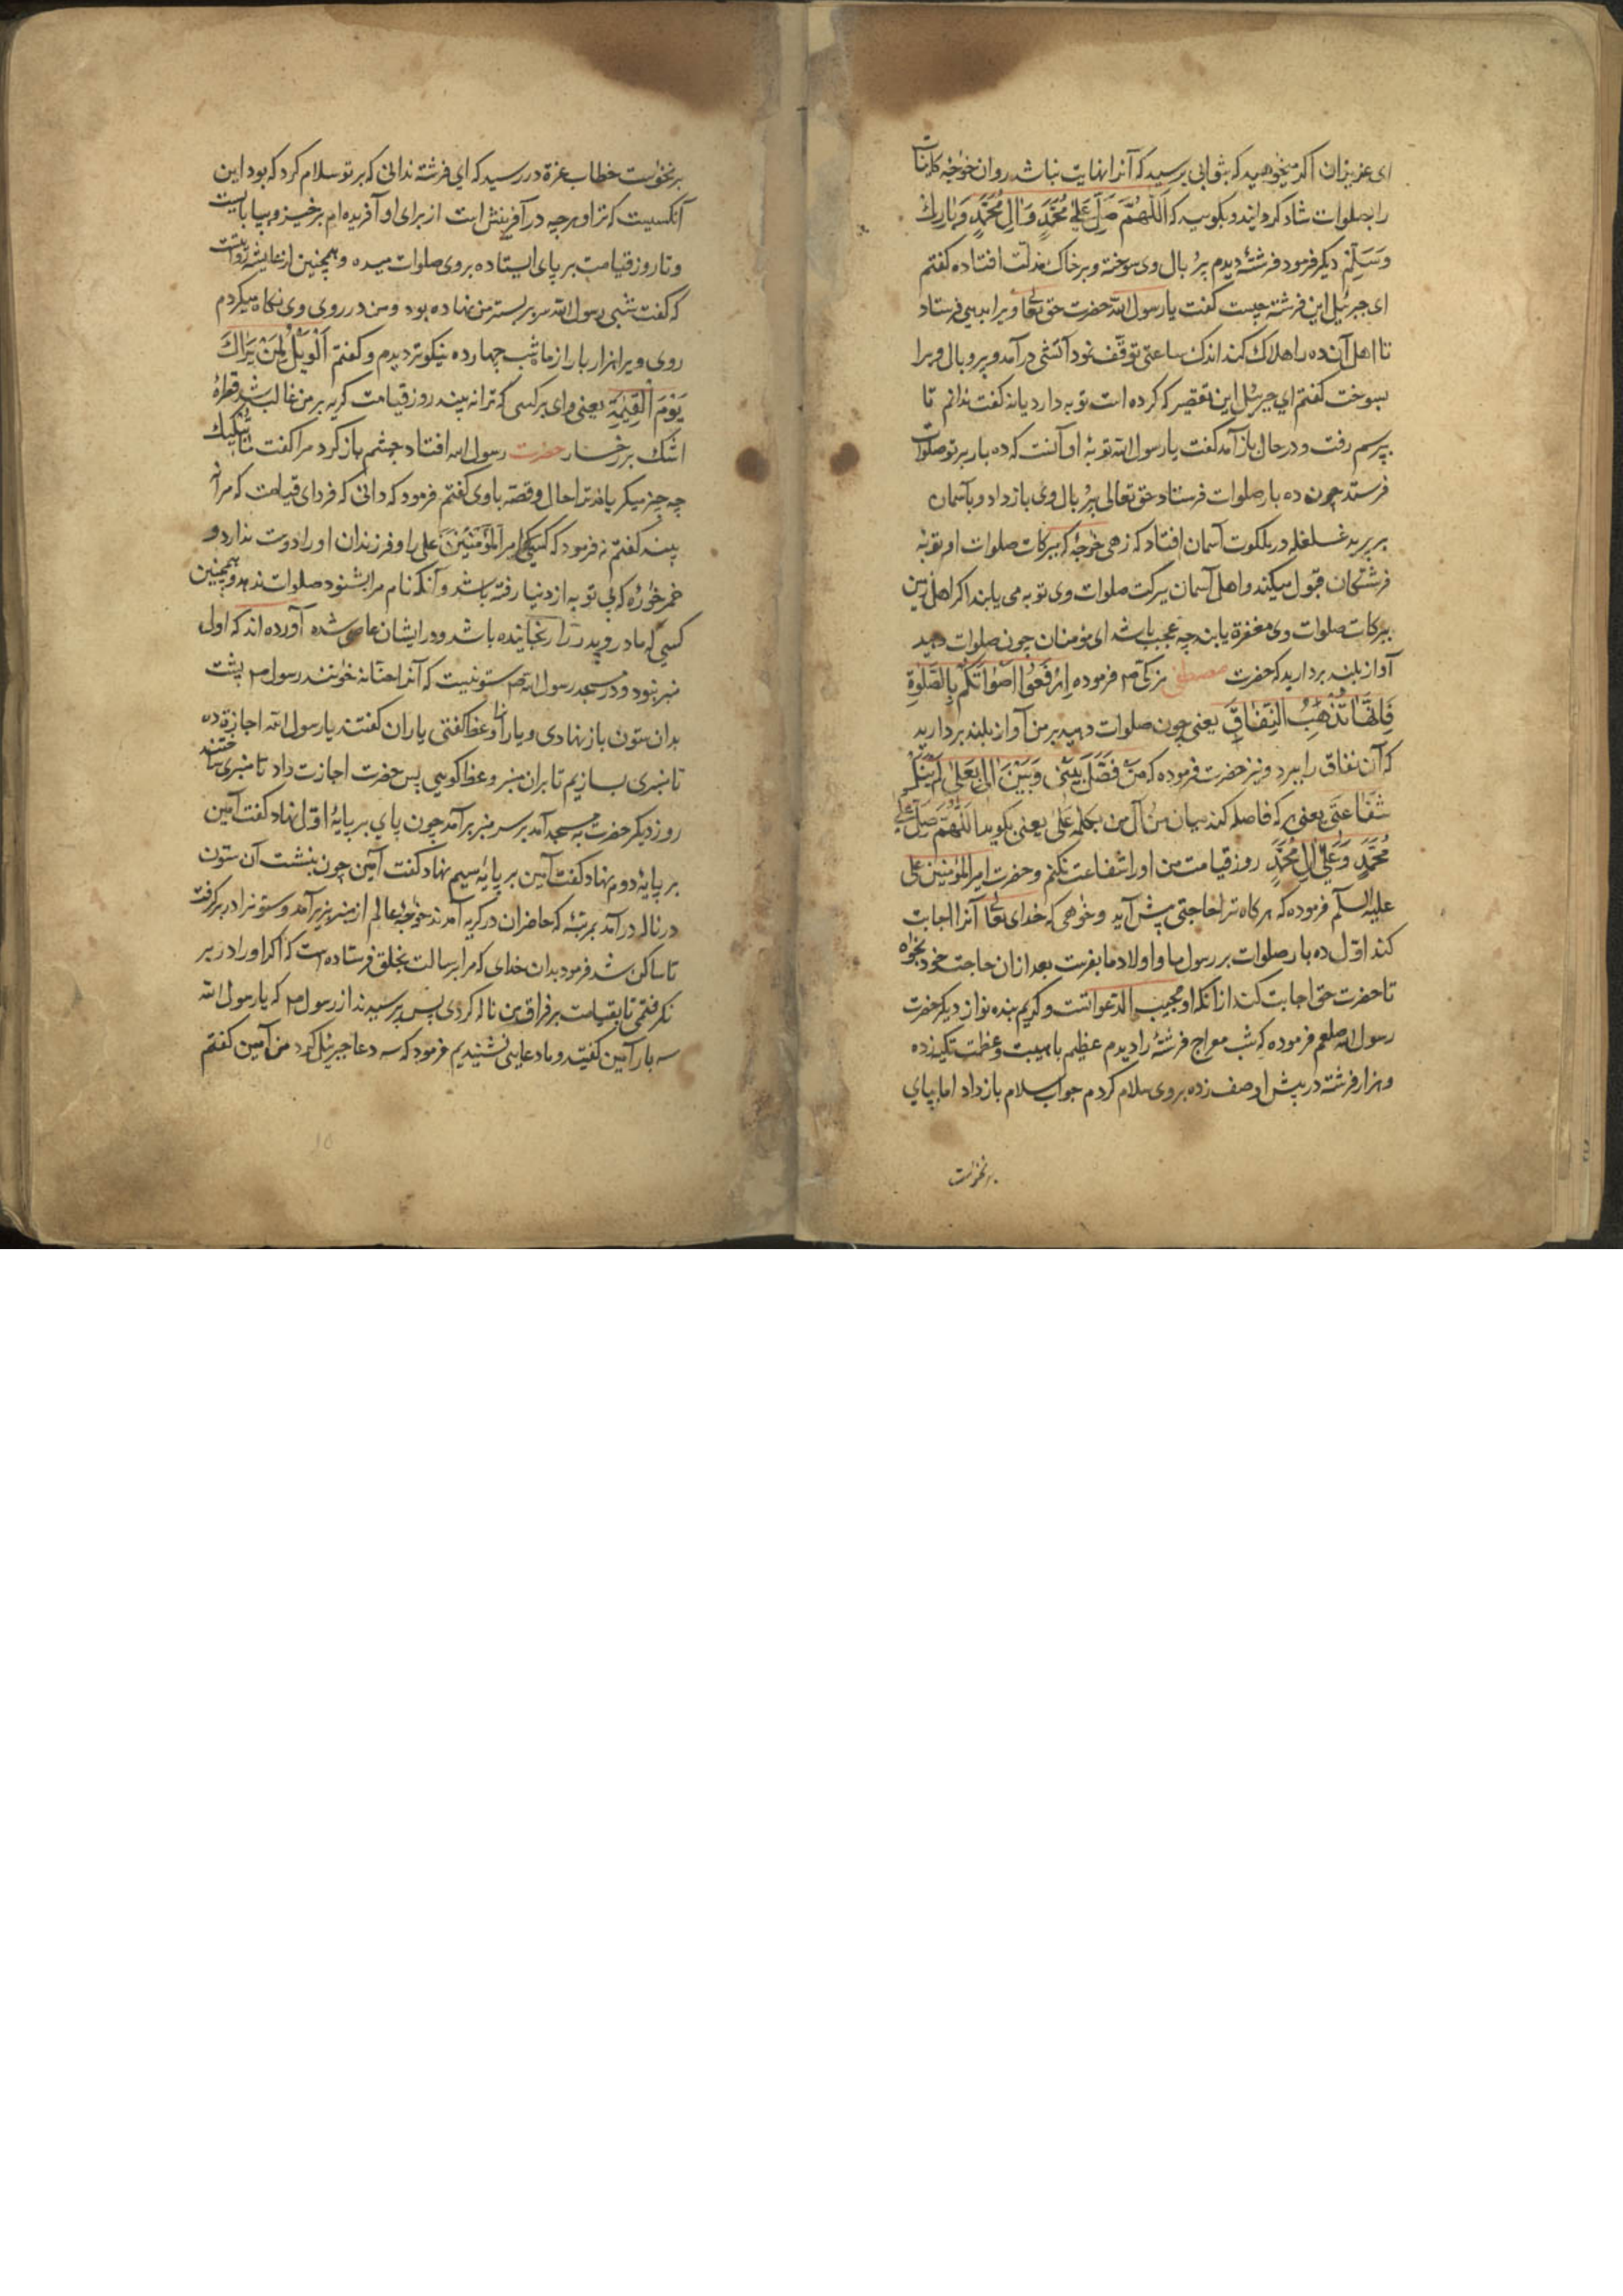 ای عزیزان اکر میخواهید که بثوابی برسید که آنرا نهایت نباشد روان خواجه کاینات
را بصلوات شاد کردانید و بکویید که اَللّٰهُمَّ صَلِّ عَلیٰ مُحَمَّدٍ وَ اٰلِ مُحَمَّدٍ وَ بٰارِکْ
وَسَلِّمْ دیکر فرمود فرشتهٔ دیدم پر و بال وی سوخته و بر خاک مذلت افتاده کفتم
ای جبرئیل این فرشته چیست کفت یا رسول الله حضرت حق تعالی ویرا بدیهی فرستاد
تا اهل آن ده را هلاک کند اندک ساعتی توقف نمود آتشی درآمد و پر و بال ویرا
بسوخت کفتم ای جبرئیل این تقصیر که کرده است توبه دارد یا نه کفت ندانم تا
بپرسم رفت و در حال باز آمد کفت یا رسول الله توبهٔ او آنست که ده بار بر تو صلوات
فرستد چون ده بار صلوات فرستاد حق تعالی پر و بال وی باز داد و بآسمان
بر پرید غلغله در ملکوت آسمان افتاد که زهی خواجهٔ که ببرکات صلوات او توبهٔ
فرشتکان قبول میکند و اهل آسمان ببرکت صلوات وی توبه می یابند اکر اهل زمین
ببرکات صلوات وی مغفرة یابند چه عجب باشد ای مؤمنان چون صلوات دهید
آواز بلند بردارید که حضرت مصطفی مزکی ص فرموده اِرْفَعُوا اَصْوٰاتَکُمْ بِالصَّلٰوةِ
فَاِنَّهٰا تُذْهِبُ النِّفٰاقَ یعنی چون صلوات دهید بر من آواز بلند بردارید
که آن نفاق را ببرد و نیز حضرت فرموده که مَنْ فَصَّلَ بَیْنی وَ بَیْنَ اٰلی بِعَلیٰ لَمْ یَنَلْ
شَفٰاعَتی یعنی هر که فاصله کند میان من و آل من بکلمه عَلیٰ یعنی بکوید اَللّٰهُمَّ صَلِّ عَلیٰ
مُحَمَّدٍ وَ عَلیٰ اٰلِ مُحَمَّدٍ روز قیامت من او را شفاعت نکنم و حضرت امیر المؤمنین علی
علیه السلم فرموده که هر کاه ترا حاجتی پیش آید و خواهی که خدای تعالی آنرا اجابت
کند اوّل ده بار صلوات بر رسول ما و اولاد ما بفرست بعد از ان حاجت خود بخواه
تا حضرت حق اجابت کند از آنکه او مجیب الدعواتست و کریم بنده نواز دیکر حضرت
رسول الله صلعم فرموده که شب معراج فرشتهٔ را دیدم عظیم با هیبت و عظمت تکیه زده
و هزار فرشته در پیش او صف زده بر وی سلام کردم جواب سلام باز داد اما بپای
برنخواست
برنخواست خطاب عزة در رسید که ای فرشته ندانی که بر تو سلام کرد که بود این
آنکسیست که ترا و هر چه در آفرینش است از برای او آفریده ام برخیز و بپا بایست
و تا روز قیامت بر پای ایستاده بر وی صلوات میده و همچنین از عایشه روایتست
که کفت شبی رسول الله سر بر بستر من نهاده بود و من در روی وی نکاه میکردم
روی ویرا هزار بار از ماه شب چهارده نیکوتر دیدم و کفتم اَلْوَیْلُ لِمَنْ یَرٰاکَ
یَوْمَ الْقِیٰمَةِ یعنی وای بر کسی که ترا نه بیند روز قیامت کریه بر من غالب شد قطرهٔ
اشک بر رخسار حضرت رسول الله افتاد چشم باز کرد مرا کفت
چه چیز میکریاند ترا حال و قصه با وی کفتم فرمود که دانی که فردای قیامت که مرا نه
بیند کفتم نه فرمود که کسیکه امیر المؤمنین علی را و فرزندان او را دوست ندارد و
خمر خوارهٔ که بی توبه از دنیا رفته باشد و آنکه نام مرا بشنود صلوات ندهد و همچنین
کسی که مادر و پدر را رنجانیده باشد و در ایشان عاصی شده آورده اند که اول
منبر نبود و در مسجد رسول الله ص ستونیست که آنرا حنّانه خوانند رسول ص پشت
بدان ستون باز نهادی و یارانرا وعظ کفتی یاران کفتند یا رسول الله اجازة ده
تا منبری بسازیم تا بران منبر وعظ کویی پس حضرت اجازت داد تا منبری ساختند
روز دیکر حضرت به مسجد آمد بر سر منبر برآمد چون پای بر پایهٔ اوّل نهاد کفت آمین
بر پایهٔ دوم نهاد کفت آمین بر پایهٔ سیم نهاد کفت آمین چون بنشست آن ستون
در ناله درآمد بمرتبهٔ که حاضران در کریه آمدند خواجهٔ عالم از منبر بزیر آمد و ستونرا در بر کرفت
تا ساکن شد فرمود بدان خدای که مرا برسالت بخلق فرستاده است که اکر او را در بر
نکرفتمی تا بقیامت بر فراق من ناله کردی پس پرسیدند از رسول ص که یا رسول الله
سه بار آمین کفتید و ما دعایی نشنیدیم فرمود که سه دعا جبرئیل کرد من آمین کفتم